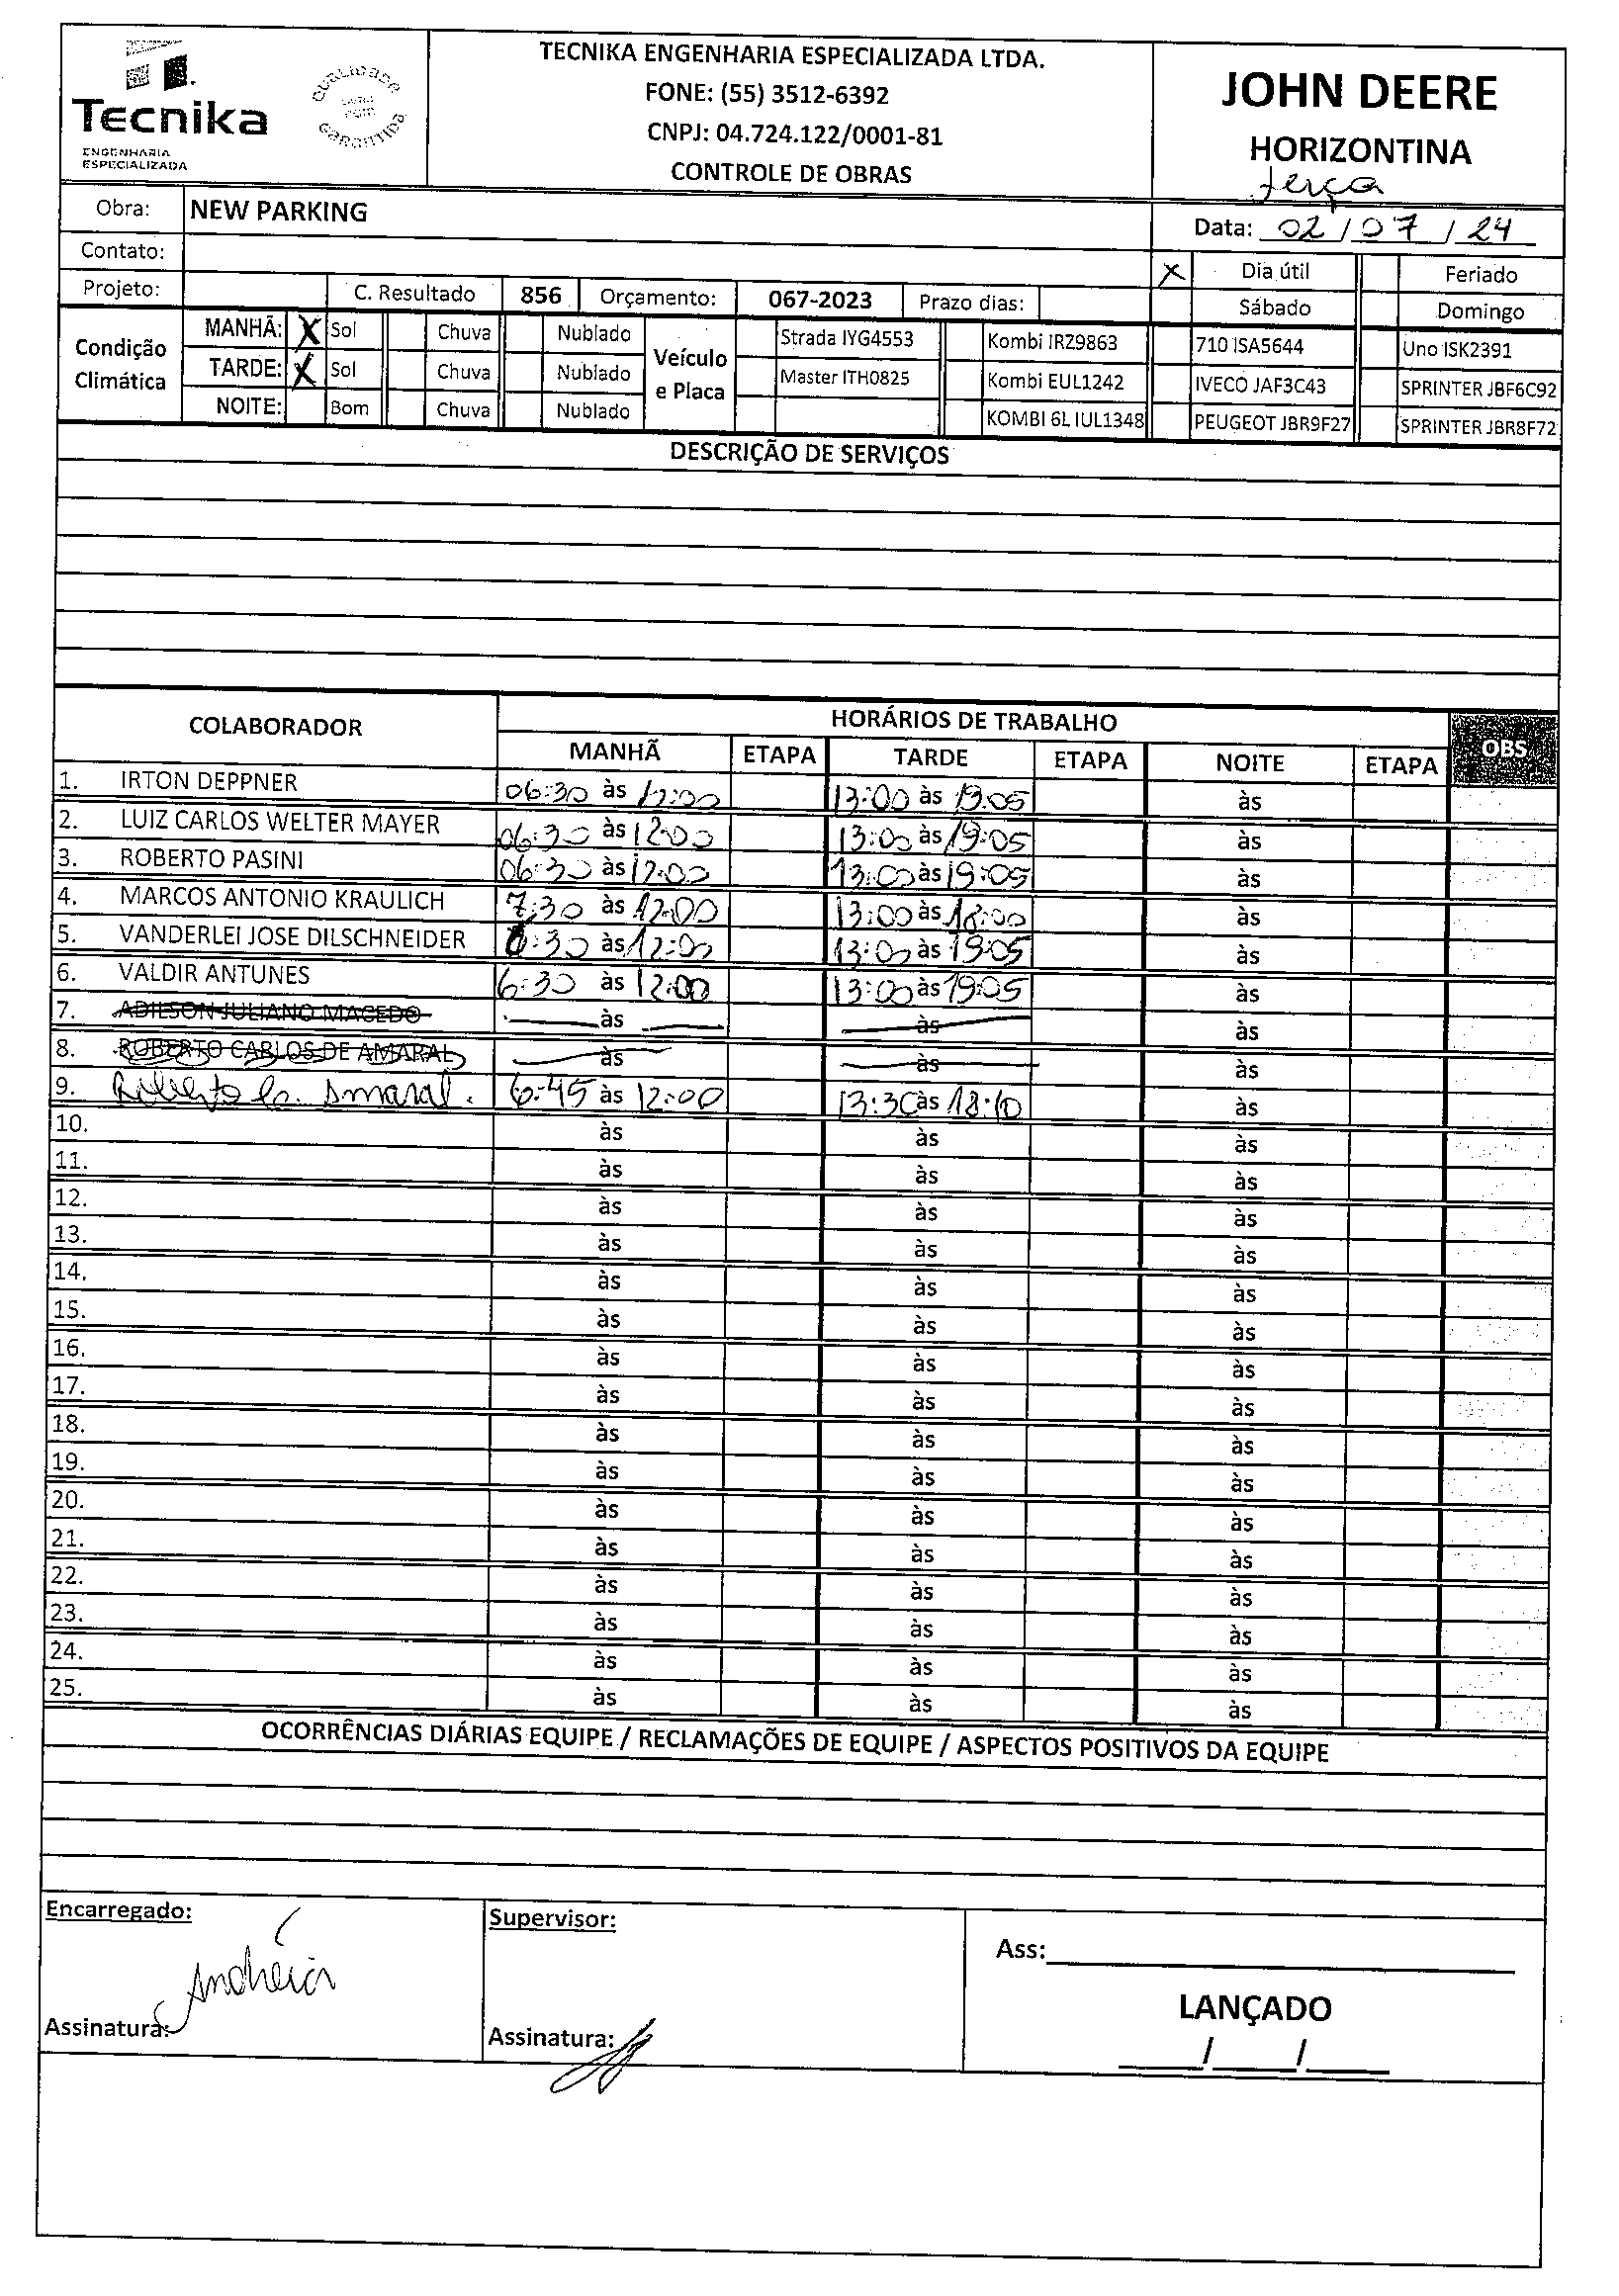 Tecnika
ENGENHARIA
ESPECIALIZADA
QUALIDADE
GARANTIDA
TECNIKA ENGENHARIA ESPECIALIZADA LTDA.
FONE: (55) 3512-6392
CNPJ: 04.724.122/0001-81
CONTROLE DE OBRAS
JOHN DEERE
HORIZONTINA
terça
Obra: NEW PARKING
Data: 02/07/24
Contato:
X Dia útil Feriado
Projeto: C. Resultado 856 Orçamento: 067-2023 Prazo dias: Sábado Domingo
Condição Climática
MANHÃ: X Sol Chuva Nublado
TARDE: X Sol Chuva Nublado
NOITE: Bom Chuva Nublado
Veículo e Placa
Strada IYG4553 Kombi IRZ9863 710 ISA5644 Uno ISK2391
Master ITH0825 Kombi EUL1242 IVECO JAF3C43 SPRINTER JBF6C92
KOMBI 6L IUL1348 PEUGEOT JBR9F27 SPRINTER JBR8F72
DESCRIÇÃO DE SERVIÇOS
COLABORADOR HORÁRIOS DE TRABALHO OBS
MANHÃ ETAPA TARDE ETAPA NOITE ETAPA
1. IRTON DEPPNER 06:30 às 12:00 13:00 às 19:05 às
2. LUIZ CARLOS WELTER MAYER 06:30 às 12:00 13:00 às 19:05 às
3. ROBERTO PASINI 06:30 às 12:00 13:00 às 19:05 às
4. MARCOS ANTONIO KRAULICH 7:30 às 12:00 13:00 às 18:00 às
5. VANDERLEI JOSE DILSCHNEIDER 6:30 às 12:00 13:00 às 19:05 às
6. VALDIR ANTUNES 6:30 às 12:00 13:00 às 19:05 às
7. ADILSON JULIANO MACEDO às às às
8. ROBERTO CARLOS DE AMARAL às às às
9. Roberto C. Amaral. 6:45 às 12:00 13:30 às 18:10 às
10. às às às
11. às às às
12. às às às
13. às às às
14. às às às
15. às às às
16. às às às
17. às às às
18. às às às
19. às às às
20. às às às
21. às às às
22. às às às
23. às às às
24. às às às
25. às às às
OCORRÊNCIAS DIÁRIAS EQUIPE / RECLAMAÇÕES DE EQUIPE / ASPECTOS POSITIVOS DA EQUIPE
Encarregado: Supervisor:
Ass:
Andréia
LANÇADO
Assinatura: Assinatura:
/ /